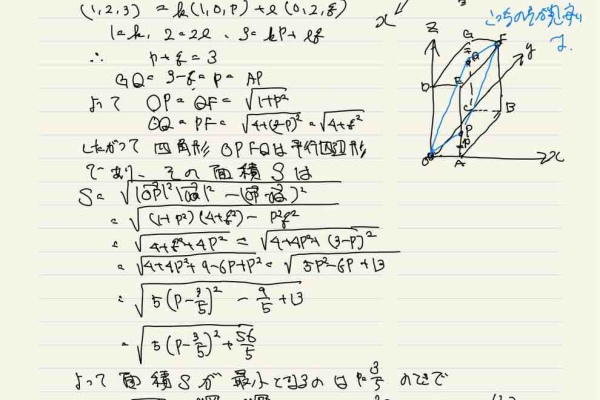 (1,2,3) = k(1,0,p) + l(0,2,q)
1=k, 2=2l, 3=kp+lq
∴ p+q=3
GQ=3-q=p=AP
よって OP=QF=√1+p²
OQ=PF=√4+(3-p)²=√4+q²
したがって 四角形 OPFQは平行四辺形
であり、その面積Sは
S=√|OP|²|OQ|²-(OP・OQ)²
=√(1+p²)(4+q²)-p²q²
=√4+q²+4p²=√4+4p²+(3-p)²
=√4+4p²+9-6p+p²=√5p²-6p+13
=√5(p-3/5)²-9/5+13
=√5(p-3/5)²+56/5
よって面積Sが最小となるのはp=3/5のときで
x
z
G
F
Q
y
D
E
C
B
P
O
A
x